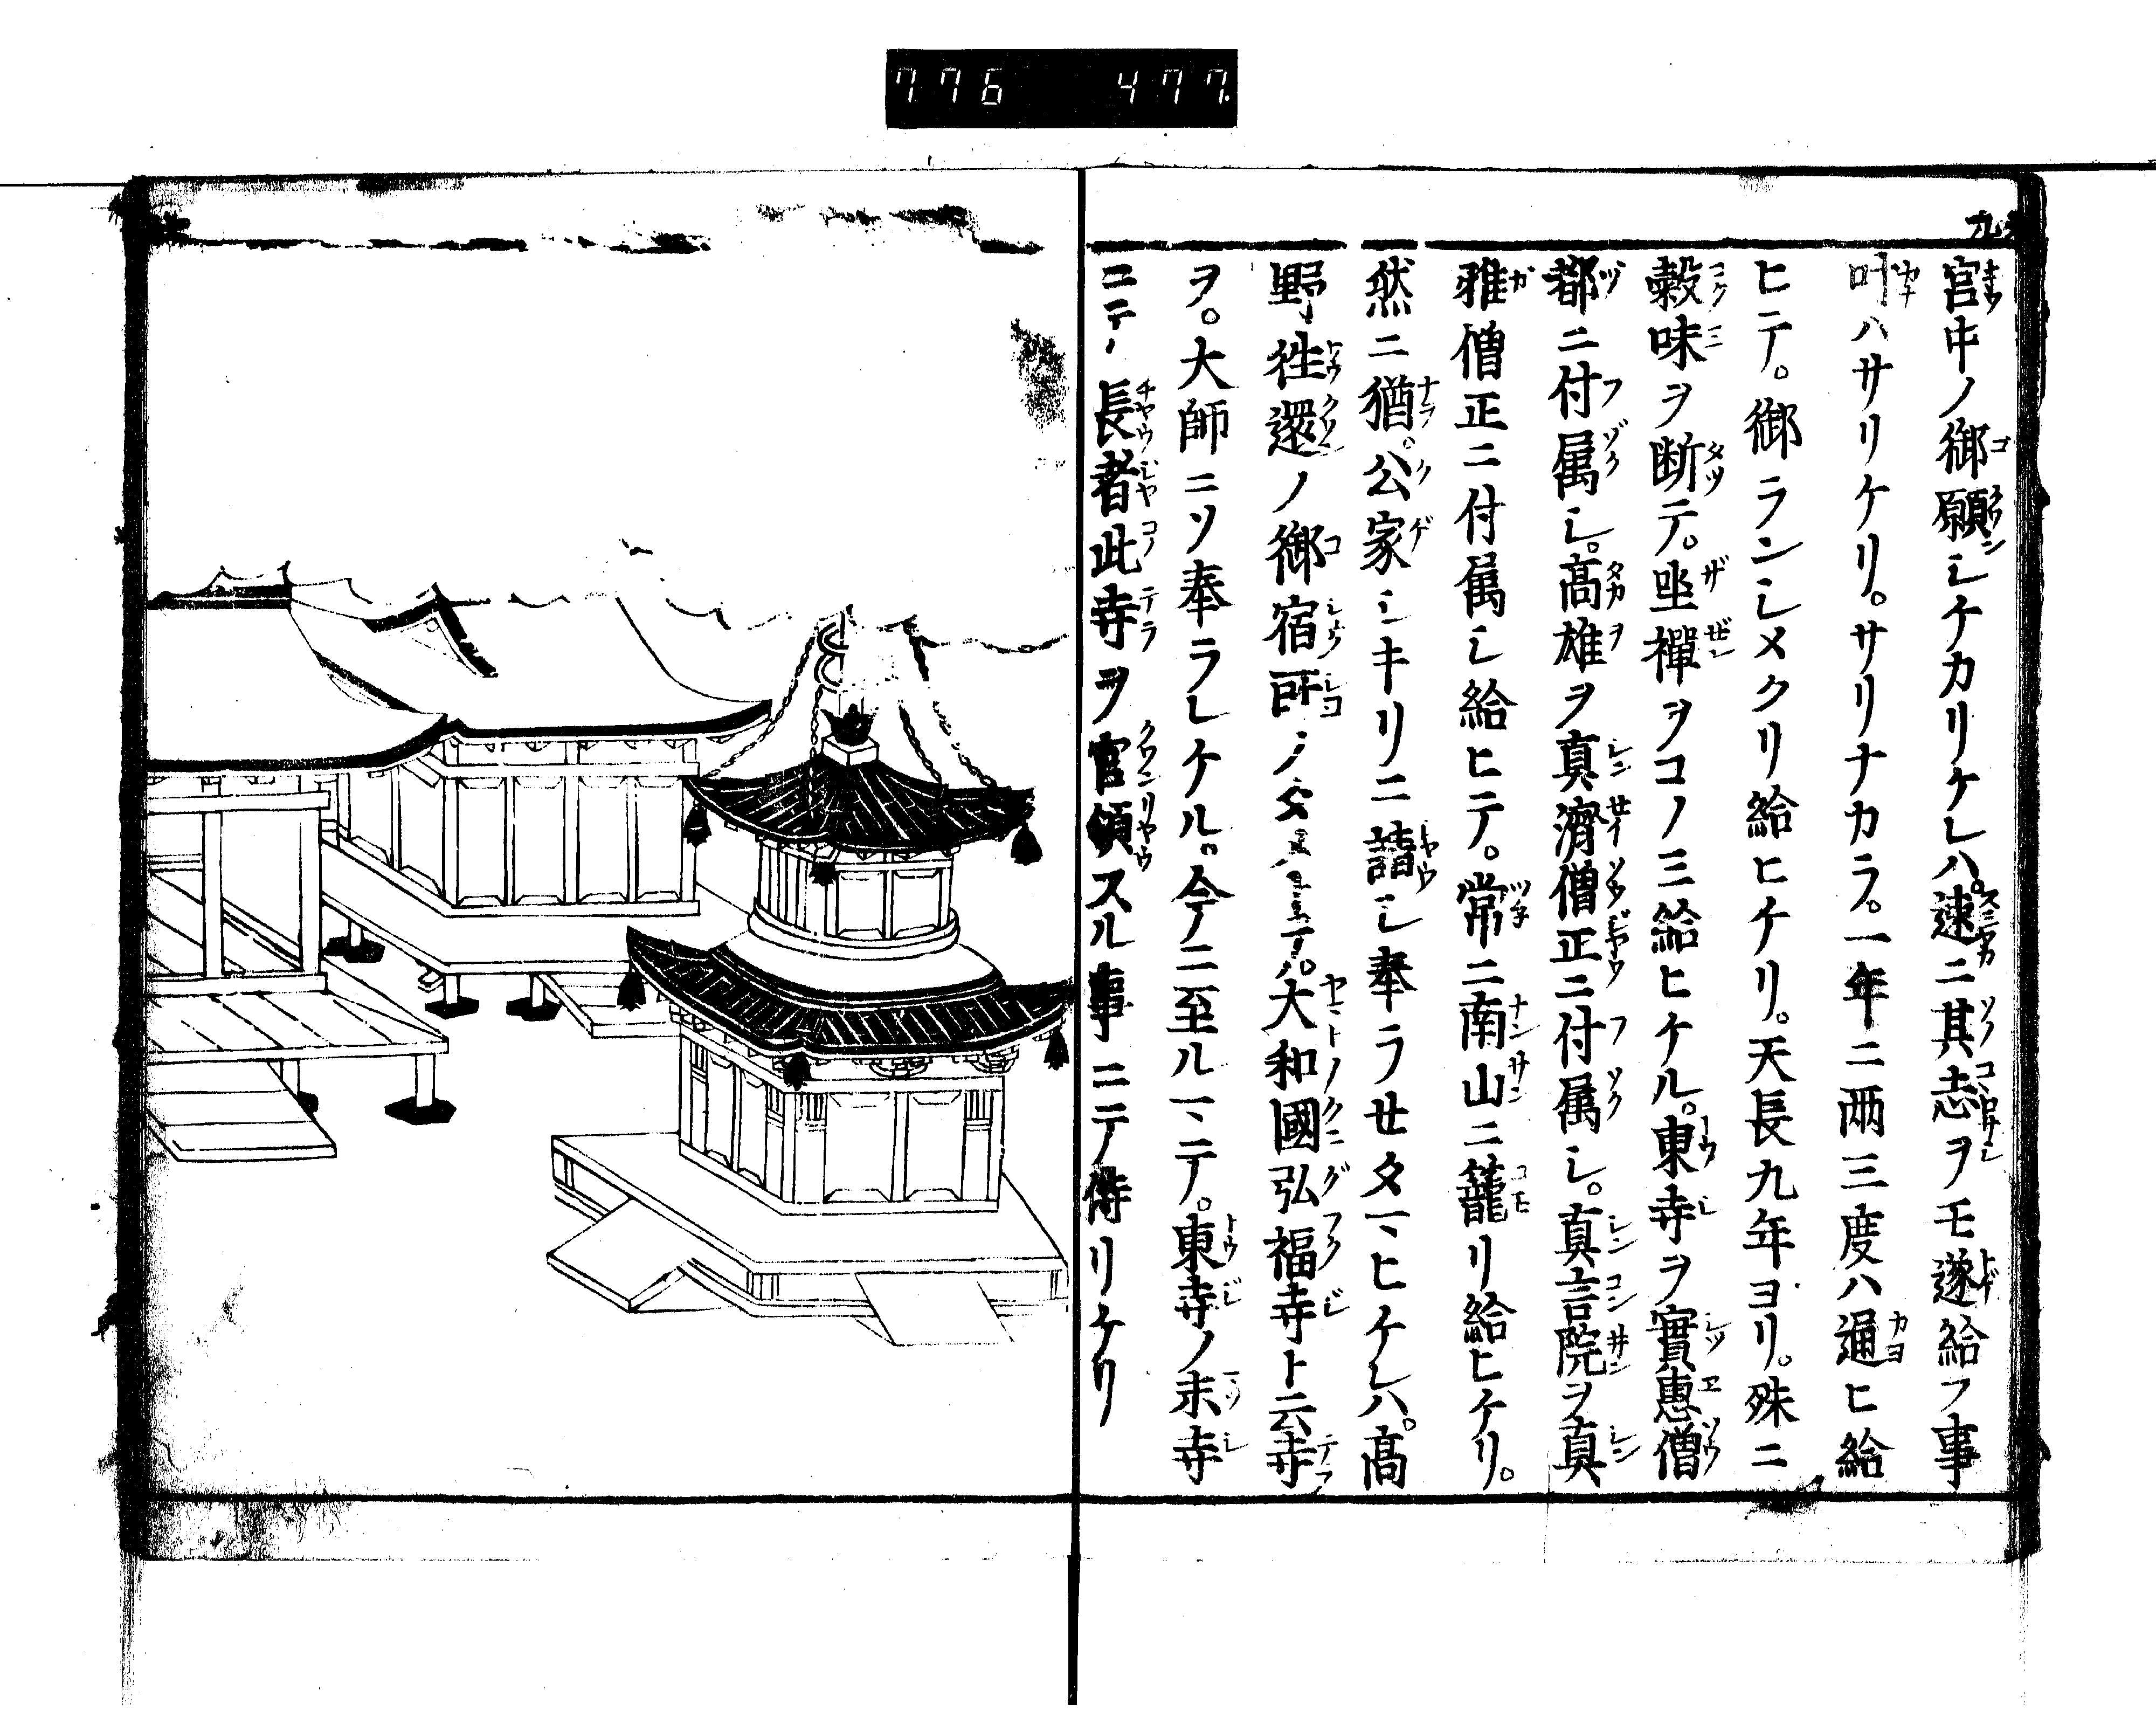 776 477.
宮中ノ御願シケカリケレハ。速ニ其志ヲモ遂給フ事
叶ハサリケリ。サリナカラ。一年ニ両三度ハ通ヒ給
ヒテ。御ランシメクリ給ヒケリ。天長九年ヨリ。殊ニ
穀味ヲ断テ。坐禪ヲコノミ給ヒケル。東寺ヲ實惠僧
都ニ付属シ。高雄ヲ真濟僧正ニ付属シ。真言院ヲ真
雅僧正ニ付属シ給ヒテ。常ニ南山ニ籠リ給ヒケリ。
然ニ猶。公家シキリニ請シ奉ラせタマヒケレハ。高
野徃還ノ御宿所ノタメトテ。大和國弘福寺ト云寺
ヲ。大師ニソ奉ラレケル。今ニ至ルマテ。東寺ノ末寺
ニテ、長者此寺ヲ官領スル事ニテ侍リケリ